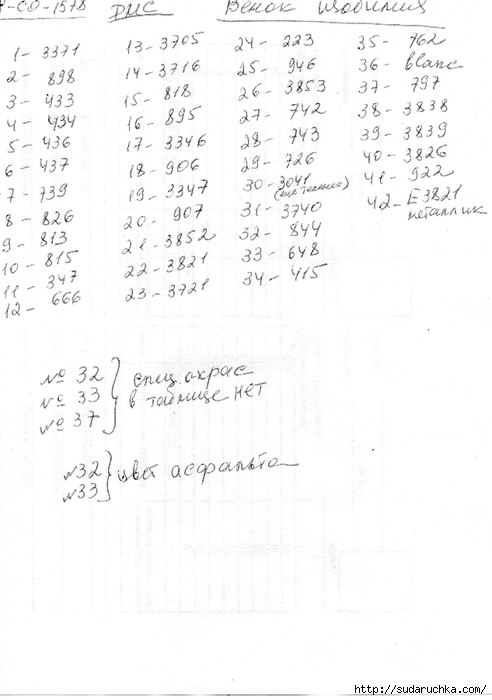 -СО-1578 DMC Венок изобилия
1 - 3371
2 - 898
3 - 433
4 - 434
5 - 436
6 - 437
7 - 739
8 - 826
9 - 813
10 - 815
11 - 347
12 - 666
13 - 3705
14 - 3716
15 - 818
16 - 895
17 - 3346
18 - 906
19 - 3347
20 - 907
21 - 3852
22 - 3821
23 - 3721
24 - 223
25 - 946
26 - 3853
27 - 742
28 - 743
29 - 726
30 - 3041
(еще темнее)
31 - 3740
32 - 844
33 - 648
34 - 415
35 - 762
36 - blanc
37 - 797
38 - 3838
39 - 3839
40 - 3826
41 - 922
42 - E3821
металлик
№ 32
№ 33
№ 37
спец. окрас
в таблице нет
№32
№33
цвет асфальта
http://sudaruchka.com/